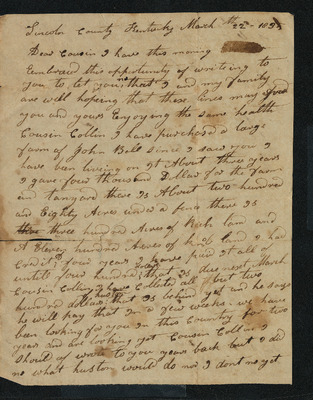 Lincoln County Kentucky March the 22nd
Dear Cousin I have this morning
Embraced this oppertunity of writing to
you to let you no that I and my family
are well hoping that these lines may find
you and yours Enjoying the same health
Cousin Collin I have purchased a large
farm of John Bell since I saw you I
have been liveing on it About three years
I gave four thousand Dollars for the farm
and tanyard there is About two hundred
and Eighty Acres under a fence there is
three hundred Acres of Rich land and
A Eleven hundred Acres of Knob land I had
Credit four years I have paid it all of
untill four hundred that is due next March
Cousin Collin I have Collected all but two
hundred dollars that is behind yet and he says
he will pay that in a few weeks we have
been looking for you in this Country for two
years and are looking yet Cousin Collin I
Should of wrote to you years back but I did
no what huston would do nor I dont no yet